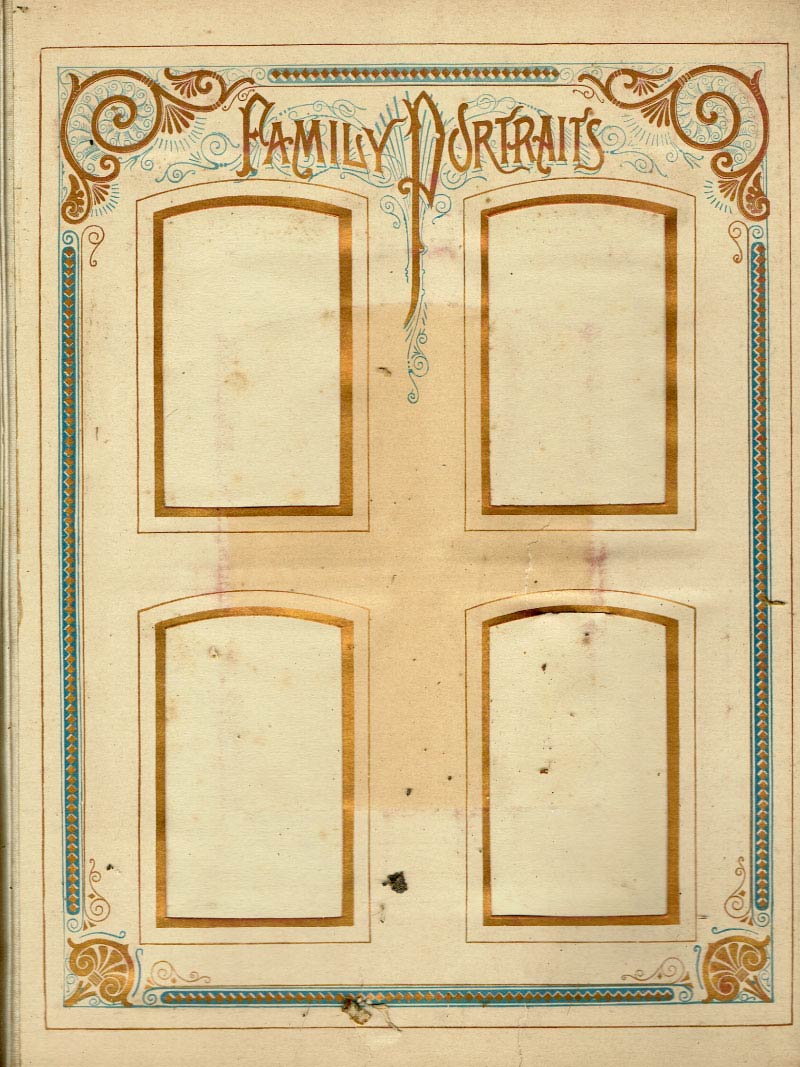 FAMILY PORTRAITS